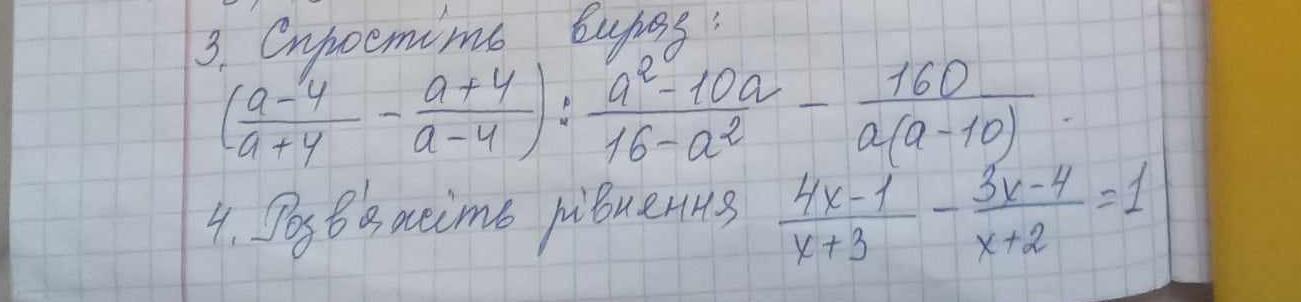 3. Спростіть вираз:
(\frac{a-4}{a+4} - \frac{a+4}{a-4}) : \frac{a²-10a}{16-a²} - \frac{160}{a(a-10)}.
4. Розв'яжіть рівняння \frac{4x-1}{x+3} - \frac{3x-4}{x+2} = 1